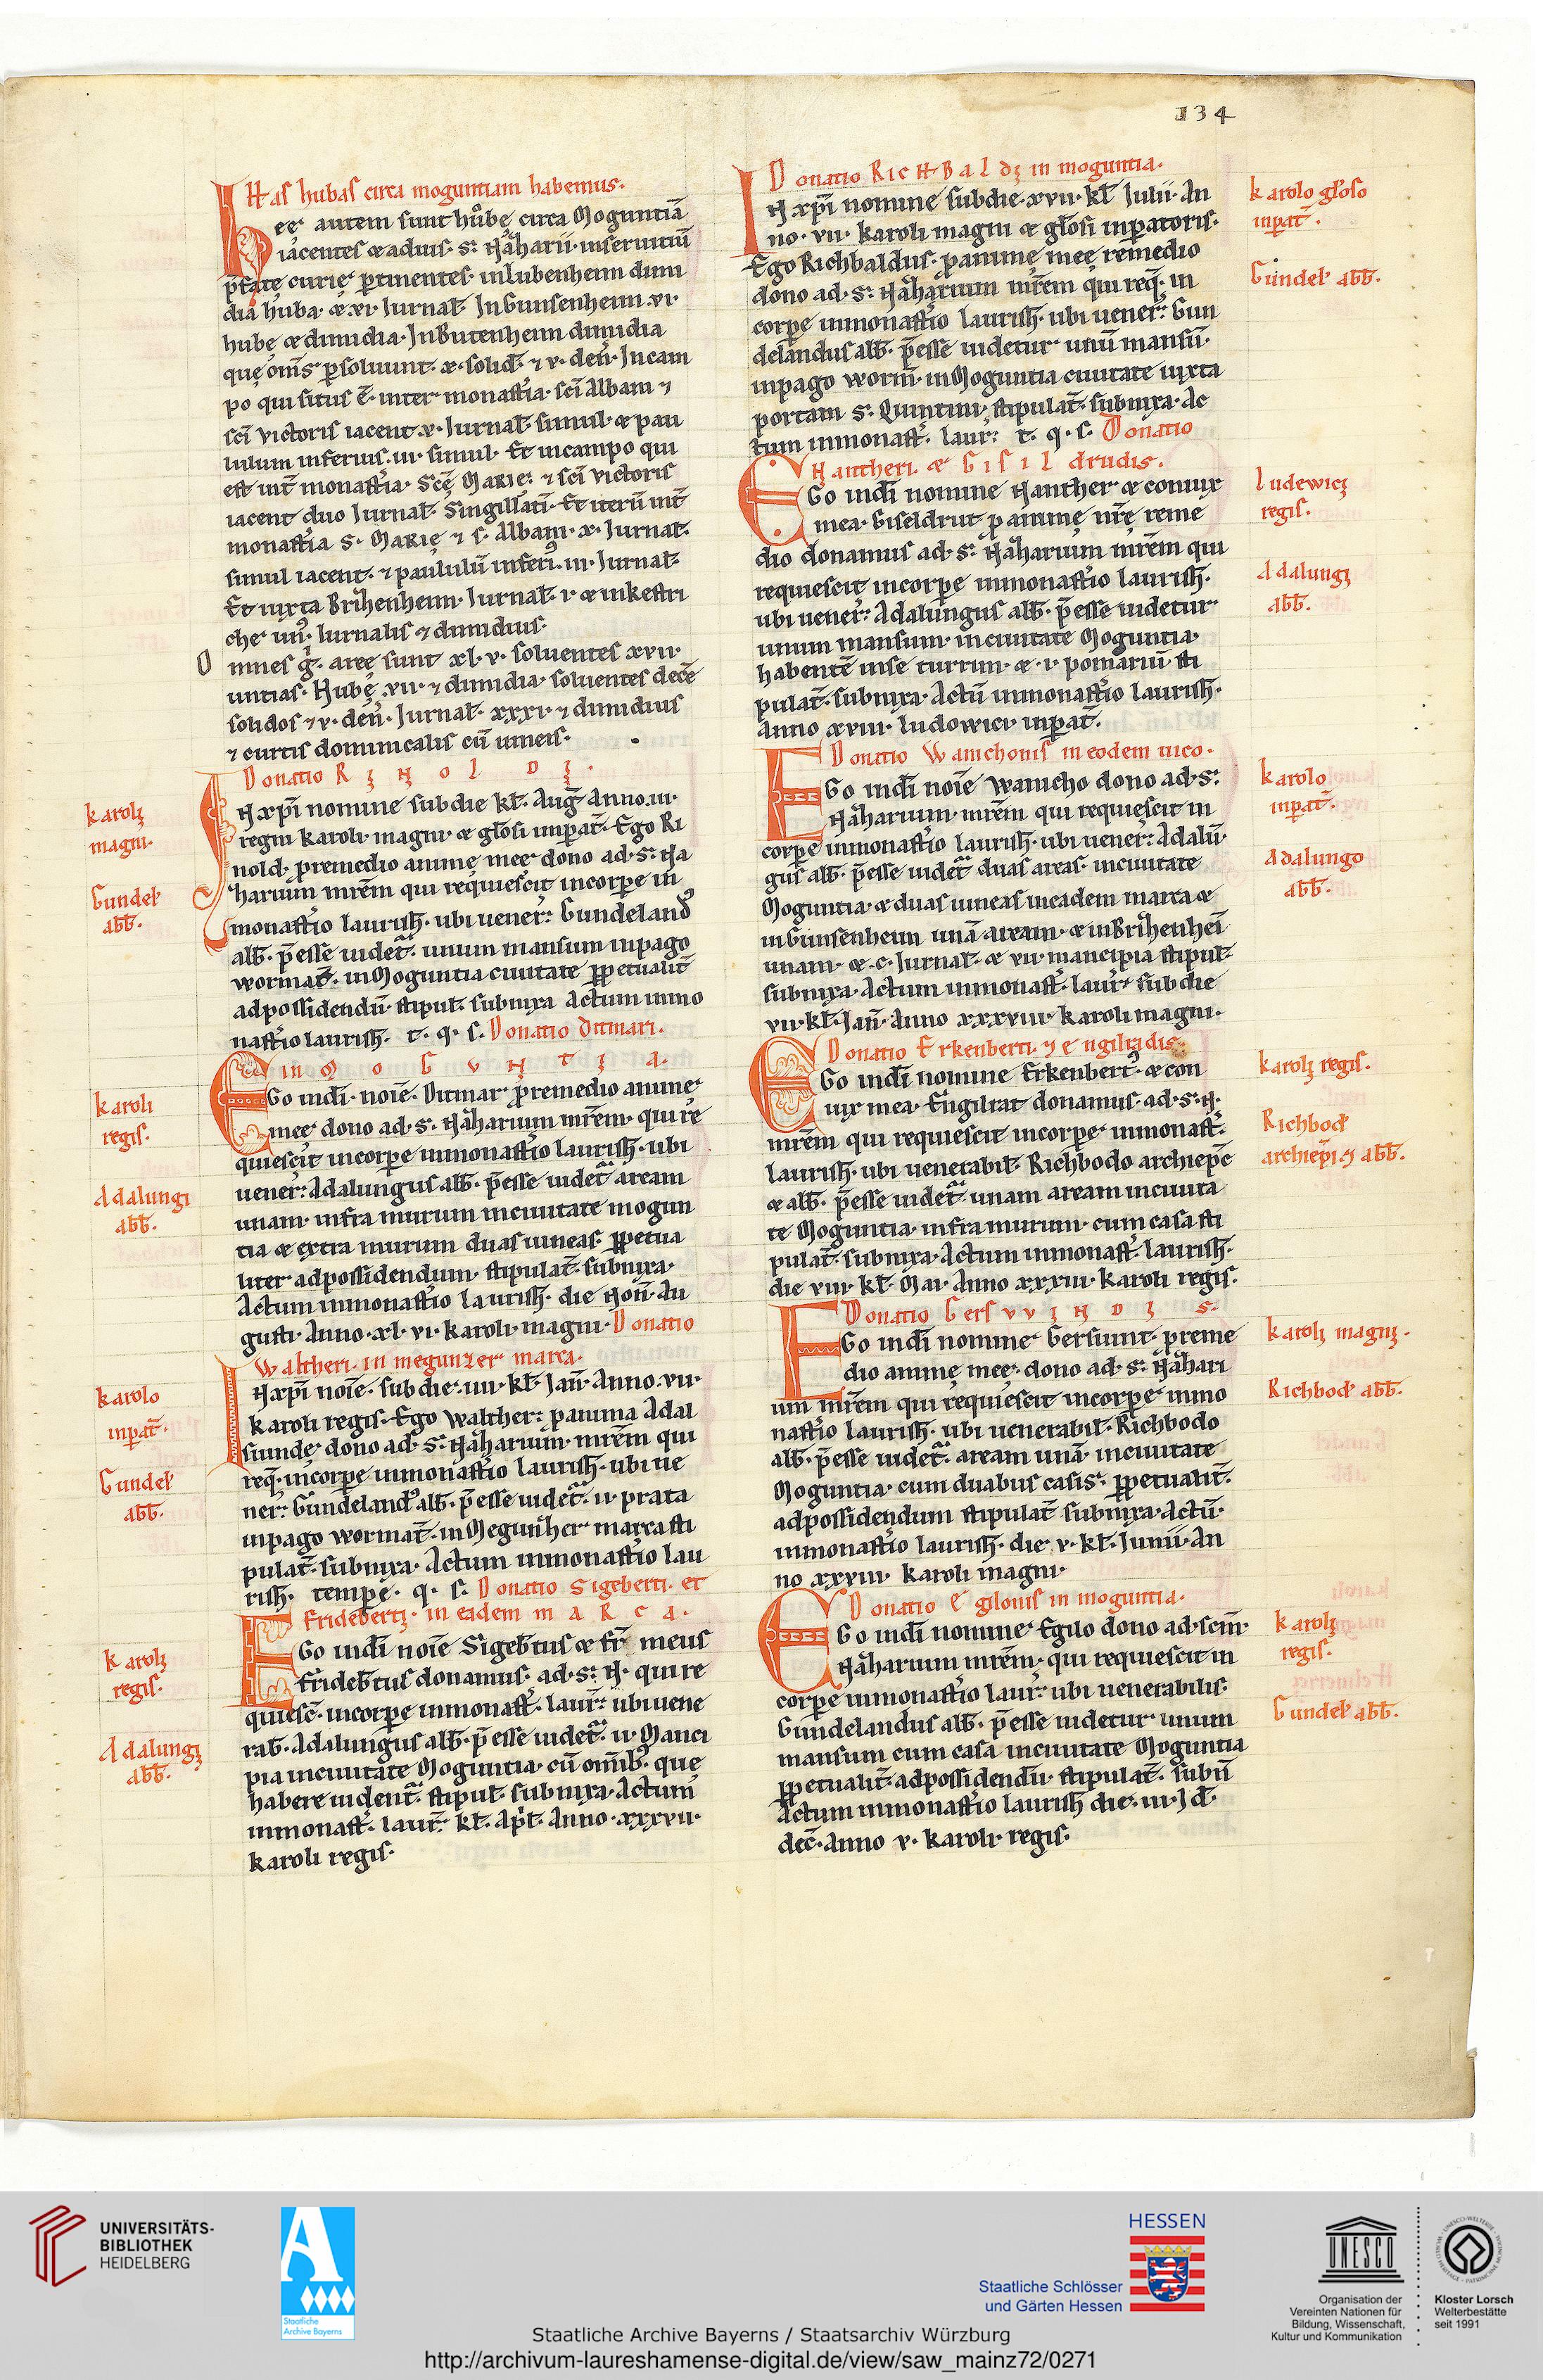 134
Has hubas circa moguntiam habemus.
Hee autem sunt hůbę circa Moguntiā
iacentes & aduis. S. Nazharii. inseruitiū
p̄fate curię ptinentes. inLubenheim dimi
diā huba. & xi. Iurnat̄. InGunsenheim. vi.
hubę & dimidia. InButenheim dimidia
quę om̄s psoluunt. x. solid. ⁊ v. den̄. Incam
po qui situs ē. inter monast̄ia. sc̄i Albani ⁊
sc̄i victoris iacent. v. Iurnat̄. simul. & pau
lulum inferius. iii. simul. Et incampo qui
est int̄ monast̄ia. Scē Marie. ⁊ sc̄i victoris
iacent duo Iurnat̄. Singillati. Et iterū int̄
monast̄ia S. Marię ⁊ s. Albani. x. Iurnat̄.
simul iacent. ⁊ paululū inferi⁹. iii. Iurnat̄.
Et iuxta Brizhenheim. Iurnat̄. v. & inkestri
che un⁹. Iurnalis ⁊ dimidius.
Omnes g̊. areę sunt xl. v. soluentes xvii.
untias. Hubę. vii. ⁊ dimidia. soluentes decē
solidos ⁊ v. den̄. Iurnat̄. xxxi. ⁊ dimidius
⁊ curtis dominicalis cū uineis.
Donatio RINOLDI.
IN xp̄i nomine subdie kł. Aug̅ Anno. iii.
regni karoli. magni. & głosi impat̄. Ego Ri
nold. premedio animę meę dono ad. S. Na
zharium mr̄em qui requiescit incorpe in
monast̄io laurish̄. ubi uener̄. Gundeland⁹
abb. p̄esse uidet̄. unum mansum inpago
wormat̄. inMoguntia ciuitate ppetualit̄
adpossidendū. stipul. subnixa Actum inmo
nast̄io laurish̄. t. q. s. Donatio Ditmari.
in MOGVNTIA.
EGo indi. noīe. Ditmar premedio animę
meę dono ad. S. Nazharium mr̄em. qui re
quiescit incorpe inmonast̄io laurish̄. ubi
uener̄. Adalungus abb. p̄esse uidet̄ aream
unam. infra murum inciuitate mogun
tia & extra murum duas uineas ppetua
liter adpossidendum. stipulat̄. subnixa.
Actum inmonast̄io laurish̄. die Non̄. Au
gusti. Anno. xl. vi. karoli. magni. Donatio
Waltheri. in megunzer marca.
IN xp̄i noīe. sub die. iiii. kł. Jan̄. Anno. vii.
karoli regis. Ego Walther. panima Adal
siundę dono ad. S. Nazharium. mr̄em qui
req̄. incorpe inmonast̄io laurish̄. ubi ue
ner̄. Gundeland⁹ abb. p̄esse uidet̄. ii. prata
inpago wormat̄. inMegunzher marca sti
pulat̄. subnixa. Actum inmonast̄io lau
rish̄. tempe. q. s. Donatio Sigeberti. et
Frideberti. in eadem mARCA.
EGo indi noīe Sigebtus & fr̄ meus
Fridebtus donamus. ad. S. N. qui re
quiesc̄. incorpe inmonast̄. laur̄. ubi uene
rab. Adalungus abb. p̄esse uidet̄. ii. Manci
pia inciuitate Moguntia. cū om̄ib⁹. que
habere uident̄. stipul. subnixa. Actum
inmonast̄. laur̄. kł. Apr̄. Anno. xxxvii.
karoli regis.
karoli
magni.
Gundeł
abb.
karoli
regis.
Adalungi
abb.
karolo
inpat̄.
Gundeł
abb.
karoli
regis.
Adalungi
abb.
Donatio RicHBaldi in moguntia.
IN xp̄i nomine subdie. xvii. kł. Iulii. An
no. vii. karoli magni & głosi inpatoris.
Ego Richbaldus. panimę meę remedio
dono ad. S. Nazharium mr̄em qui req̄. in
corpe inmonast̄io laurish̄. ubi uener̄. Gun
delandus abb. p̄esse uidetur unū mansū.
inpago worm̄. inMoguntia ciuitate iuxta
portam S. Quintini. stipulat̄. subnixa. Ac
tum inmonast̄. laur̄. t. q. s. Donatio
Hantheri. & Gisildrudis.
EGo indi nomine Hanther & coniux
mea. Giseldrut panimę nr̄ę reme
dio donamus ad. S. Nazharium mr̄em qui
requiescit incorpe inmonast̄io laurish̄.
ubi uener̄. Adalungus abb. p̄esse uidetur
unum mansum. inciuitate Moguntia.
habentē inse turrim. &. i. pomariū. sti
pulat̄. subnixa. Actū inmonast̄io laurish̄.
Anno xviii. ludowici. inpat̄.
Donatio Wanichonis in eodem uico.
EGo indi noīe Wanicho dono ad. S.
Nazharium. mr̄em qui requiescit in
corpe inmonast̄io laurish̄. ubi uener̄. Adalū
gus abb. p̄esse uidet̄ duas areas. inciuitate
Moguntia. & duas uineas ineadem marca &
inGunsenheim unā aream. & inBrizhenheī
unam. &. c. Iurnat̄. & vii. mancipia stipul
subnixa. Actum inmonast̄. laur̄. sub die
vii. kł. Jan̄. Anno xxxviii. karoli magni.
Donatio Erkenberti. ⁊ engilradis.
EGo indi nomine Erkenbert⁹. & con
iux mea. Engilrat donamus. ad. S. N.
mr̄em qui requiescit incorpe inmonast̄.
laurish̄. ubi uenerabil. Richbodo archiepc̄
& abb. p̄esse uidet̄ unam aream inciuita
te Moguntia. infra murum. cum casa sti
pulat̄. subnixa. Actum inmonast̄. laurish̄.
die viii. kł. Mai. Anno xxxiii. karoli regis.
Donatio GersvvINDIS.
EGo indi nomine Gersuint. preme
dio animę meę. dono ad. S. Nazhari
um mr̄em qui requiescit incorpe inmo
nast̄io laurish̄. ubi uenerabil. Richbodo
abb. p̄esse uidet̄. aream unā. inciuitate
Moguntia. cum duabus casis. ppetualit̄.
adpossidendum stipulat̄ subnixa. Actū.
inmonast̄io laurish̄. die. v. kł. Junii. An
no xxviii. karoli magni.
Donatio Egilonis in moguntia.
EGo indi nomine Egilo dono ad. scm̄.
Nazharium mr̄em. qui requiescit in
corpe inmonast̄io laur̄. ubi uenerabilis.
Gundelandus abb. p̄esse uidetur unum
mansum cum casa inciuitate Moguntia
ppetualit̄. adpossidendū. stipulat̄. subn̄
Actum inmonast̄io laurish̄ die. iii. Jd.
dec̄. Anno v. karoli regis.
karolo głoso
inpat̄.
Gundeł abb.
Ludewici
regis.
Adalungi
abb.
karolo
inpat̄.
Adalungo
abb.
karoli regis.
Richbod
archiep̄i ⁊ abb.
karoli magni.
Richbod abb.
karoli
regis.
Gundeł abb.
UNIVERSITÄTS-
BIBLIOTHEK
HEIDELBERG
Staatliche
Archive Bayerns
HESSEN
Staatliche Schlösser
und Gärten Hessen
UNESCO
Organisation der
Vereinten Nationen für
Bildung, Wissenschaft,
Kultur und Kommunikation
Kloster Lorsch
Welterbestätte
seit 1991
Staatliche Archive Bayerns / Staatsarchiv Würzburg
http://archivum-laureshamense-digital.de/view/saw_mainz72/0271